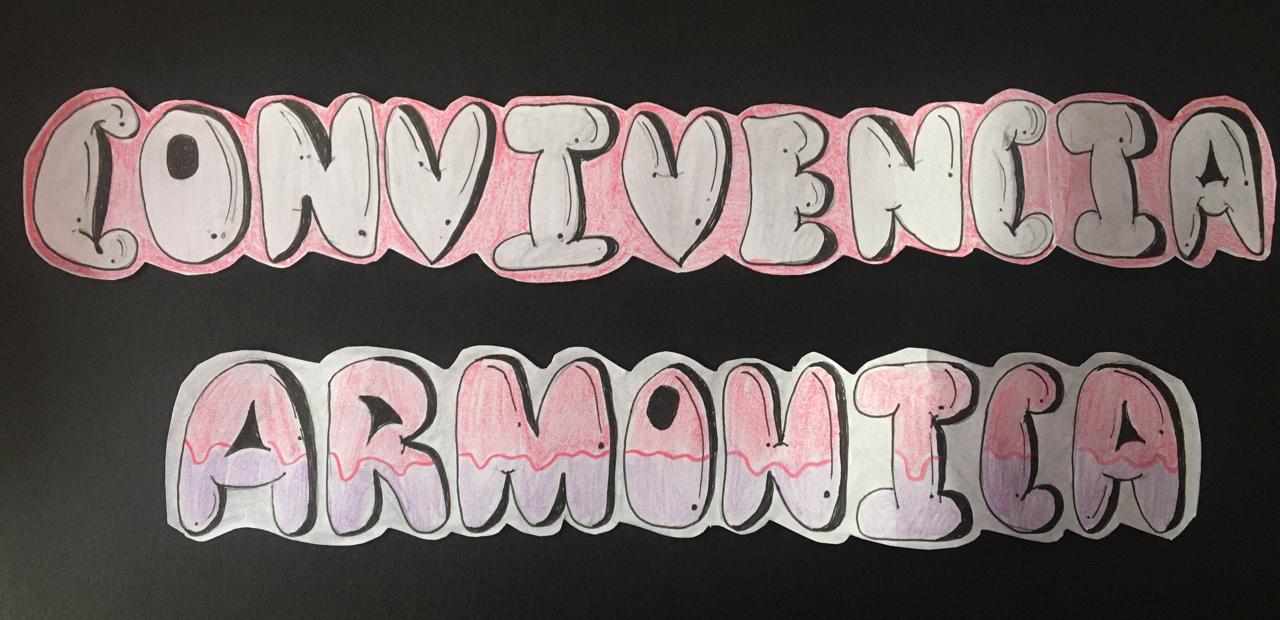 CONVIVENCIA
ARMONICA